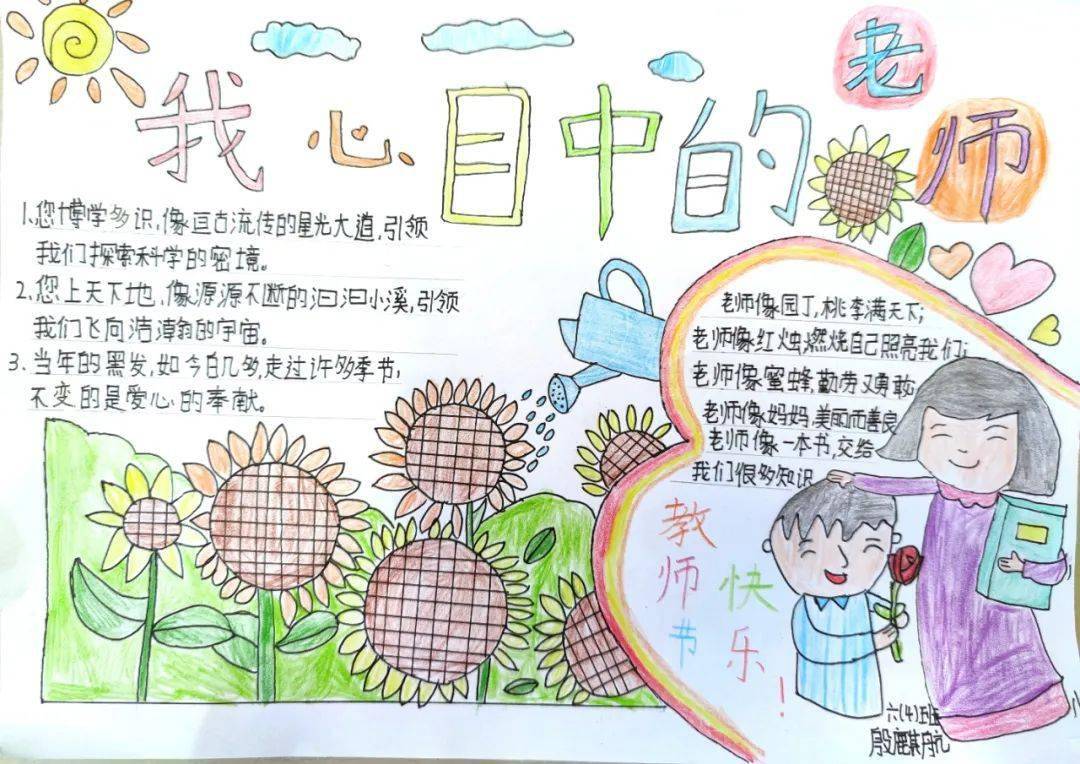 我心目中的老师
1、您博学多识,像亘古流传的星光大道,引领
我们探索科学的密境。
2、您上天下地,像源源不断的汩汩小溪,引领
我们飞向浩瀚的宇宙。
3、当年的黑发,如今白几多,走过许多季节,
不变的是爱心的奉献。
老师像园丁,桃李满天下;
老师像红烛,燃烧自己照亮我们;
老师像蜜蜂,勤劳又勇敢
老师像妈妈,美丽而善良
老师像一本书,交给
我们很多知识
教师节
快乐!
六(4)班
殷麒航